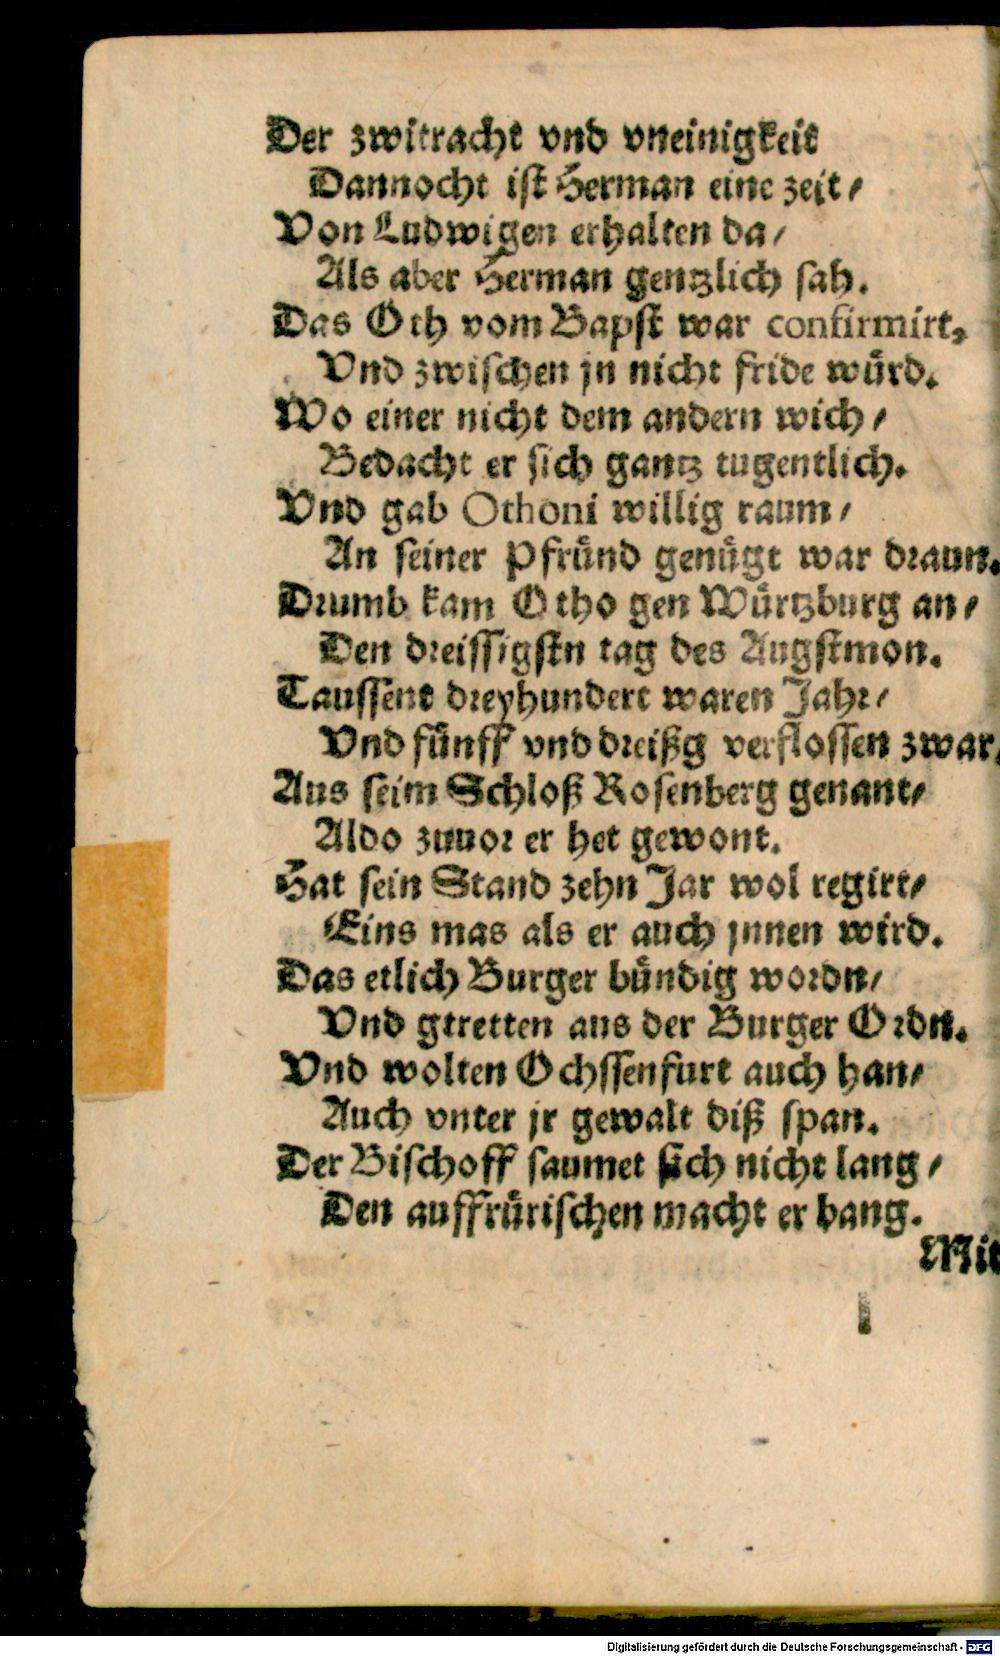 Der zwitracht vnd vneinigkeit
Dannocht ist Herman eine zeit/
Von Ludwigen erhalten da/
Als aber Herman gentzlich sah.
Das Oth vom Bapst war confirmirt,
Vnd zwischen jn nicht fride wuͤrd.
Wo einer nicht dem andern wich/
Bedacht er sich gantz tugentlich.
Vnd gab Othoni willig raum/
An seiner Pfruͤnd genuͤgt war draun.
Drumb kam Otho gen Wuͤrtzburg an/
Den dreissigstn tag des Augstmon.
Taussent dreyhundert waren Jahr/
Vnd fuͤnff vnd dreißg verflossen zwar,
Aus seim Schloß Rosenberg genant/
Aldo zuuor er het gewont.
Hat sein Stand zehn Jar wol regirt/
Eins mas als er auch jnnen wird.
Das etlich Burger buͤndig wordn/
Vnd gtretten aus der Burger Ordn.
Vnd wolten Ochssenfurt auch han/
Auch vnter jr gewalt diß span.
Der Bischoff saumet sich nicht lang/
Den auffruͤrischen macht er bang.
Mit
Digitalisierung gefördert durch die Deutsche Forschungsgemeinschaft - DFG